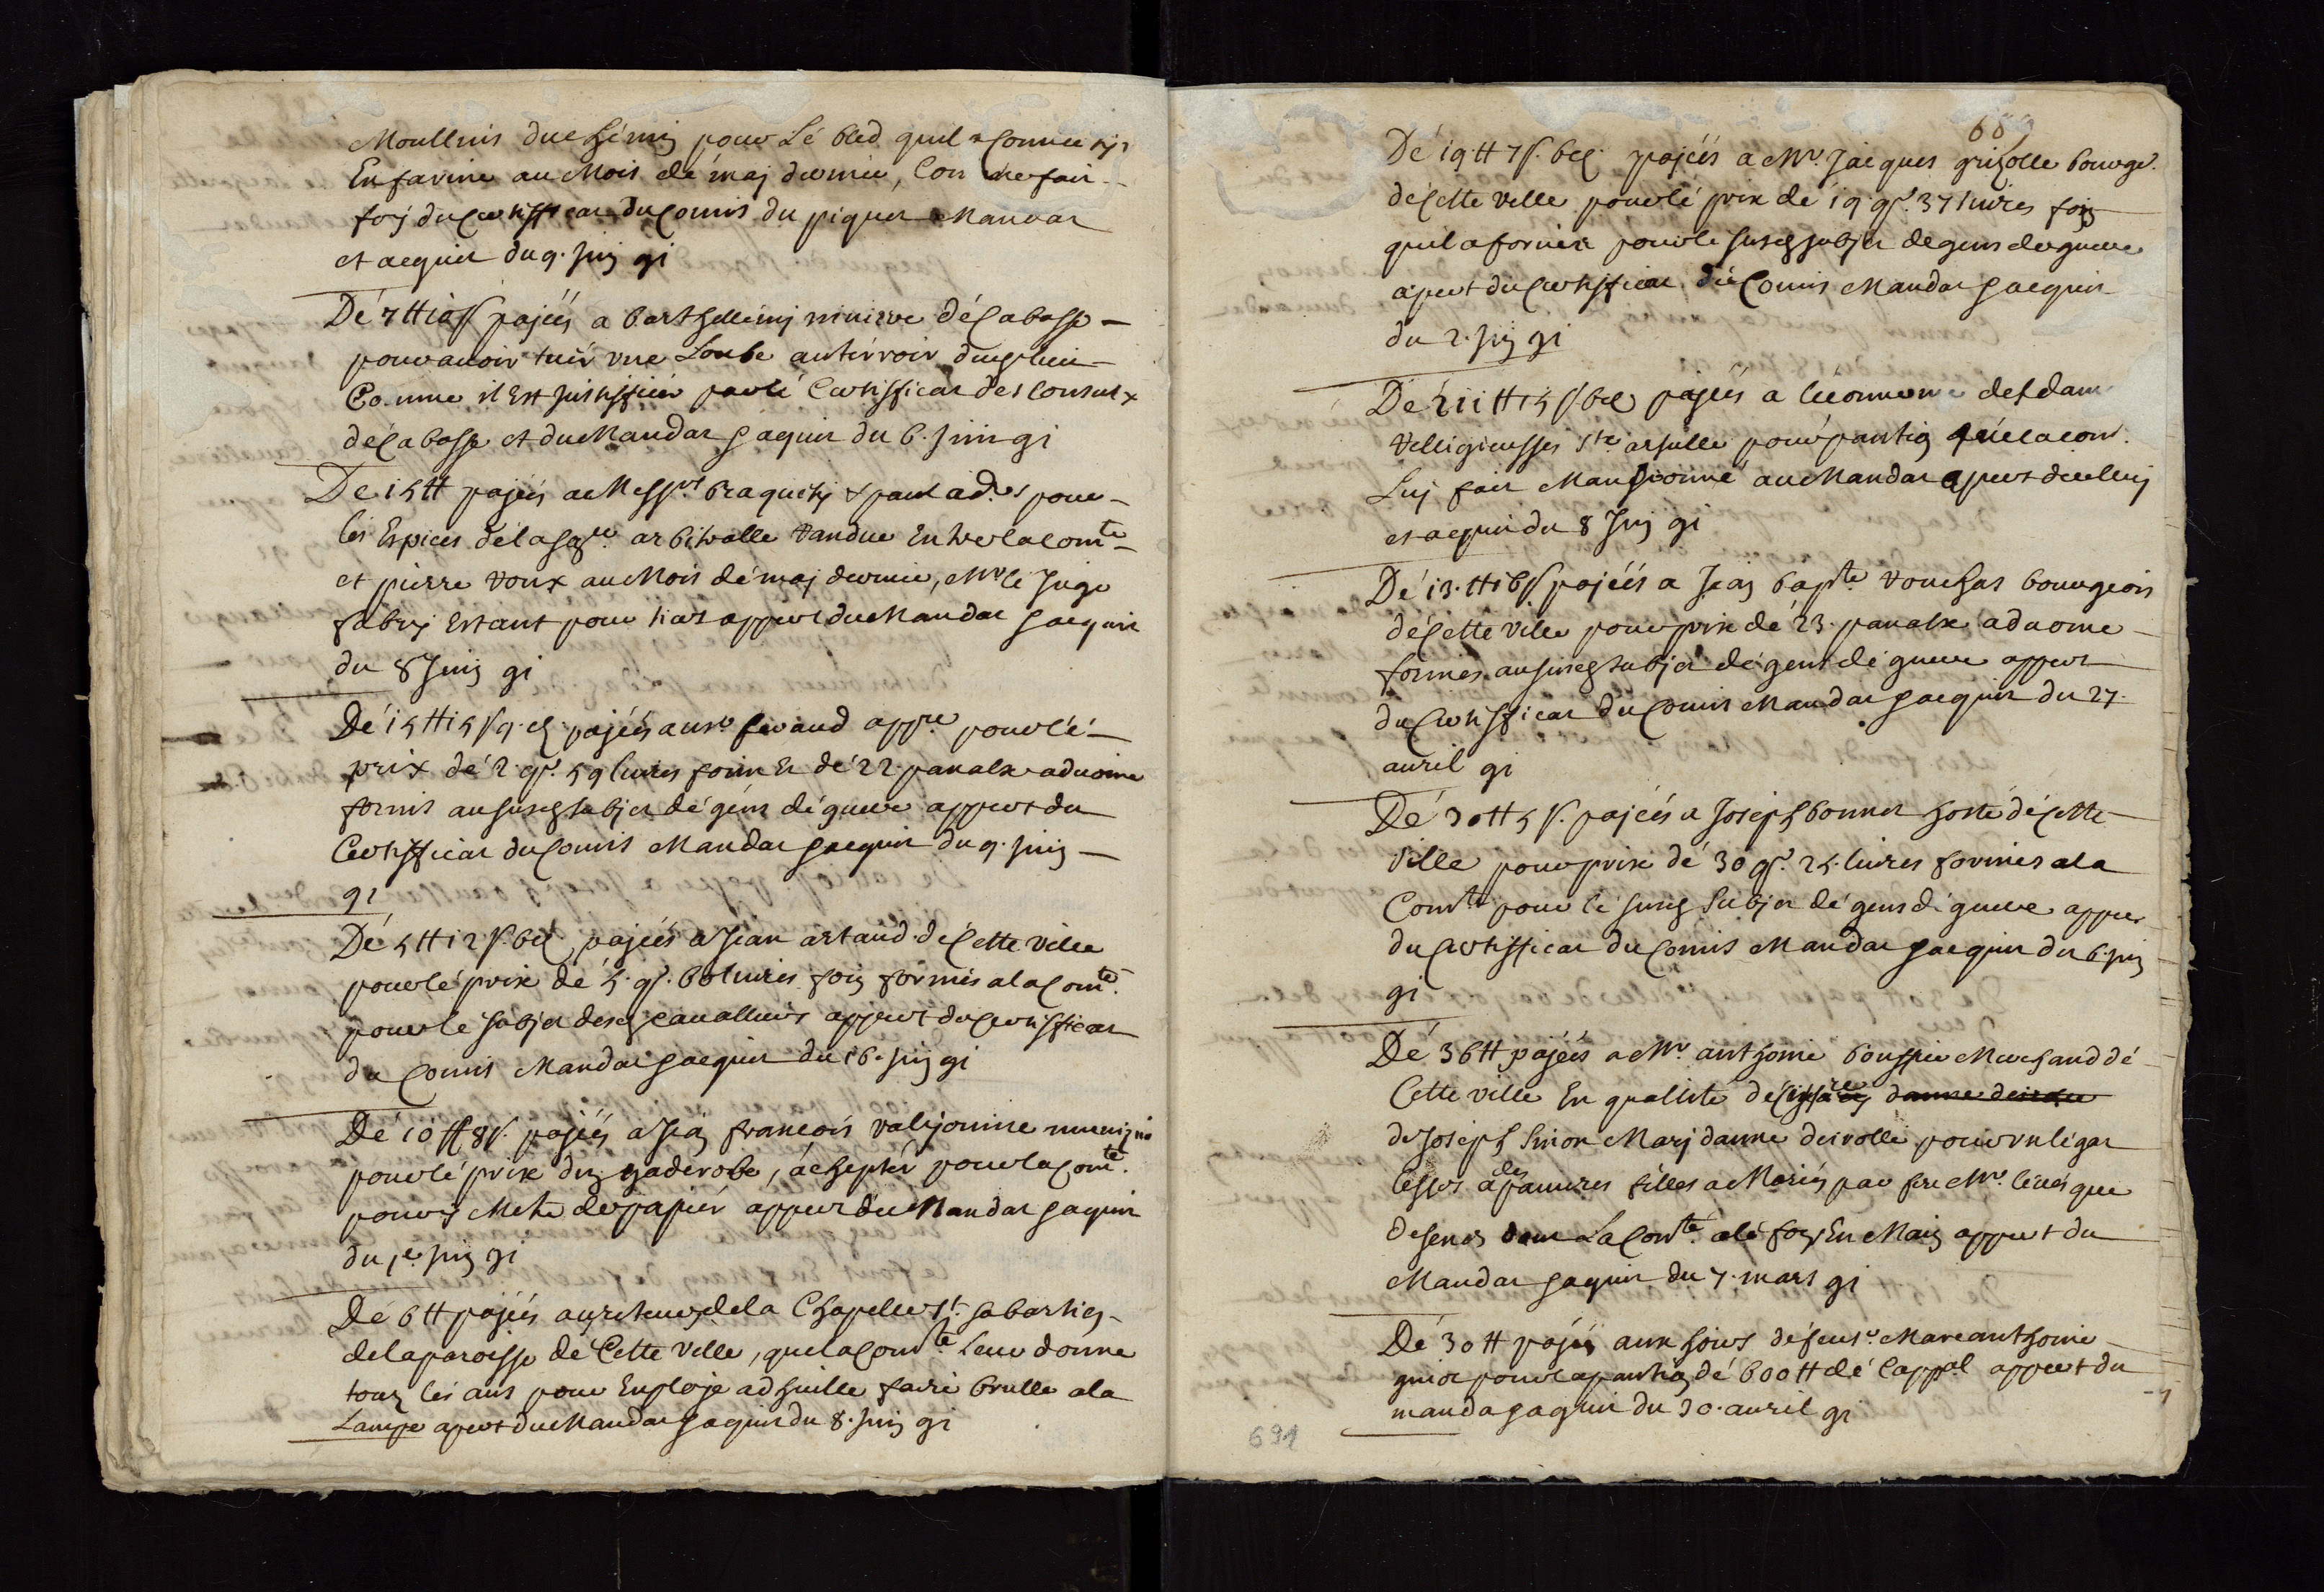 Moullins du chémin pour Lé bled quil a Conuerty
En farine au Mois dé maj dernier, Con me fait
foj du Certifficat du Comis du piquet Mandat
et acquit du 9. Juin gi
Dé 7 tt 10 s pajéés a barthellemj minive dé Cabasse
pour auoir tuér vne Loube au térroir dud lieu
Comme il Est Justiffiér par lé Certifficat des Consuls
dé Cabasse et du Mandat & aquit du 6. Juin gi
De 15 tt pajéés a Messrs braquetj & paul ad.ts pour
lés Espices dé la sance arbitralle randue Entre la Comté
et pierre roux au Mois dé maj dernier, Mr lé Juge
fabrj Estant pour tiers appert du Mandat & acquit
du 8 Juin gi
Dé 15 tt 15 s 9 d. pajéés a sr feraud appre pour lé
prix dé 2. q. 59 liures foin Et dé 22 panals aduoine
fornis au susd subjet dé géns dé guerre appert du
Certifficat du Comis Mandat & acquit du 9. Juin
gi
Dé 5 tt 12 s. 6 d pajéés a Jean artaud dé Cette ville
pour lé prix dé 5. q. 60 liures foin fornies a la Comté.
pour lé subjet desd Caualliers appert du Certifficat
du Comis Mandat & acquit du 16. Juin gi
Dé 10 tt 8 s. pajéés a Jean francois valijonine
pour lé prix dun gaderobe, achéptér pour la Comté.
pour y Metre des papiér appert du Mandat & aquit
du 1er Juin gi
De 6 tt pajéés au recteurs de la Chapelle St. sabastien
de la paroisse dé Cette ville, que la Comté Leur donne
tous lés ans pour Enploje adhuille faire brulle a la
Lampe apert du Mandat & aquit du 8. Juin gi
689
Dé 19 tt 7 s. 6 d. pajéés a Mr. Jacques grizolle bourgs.
dé Cette ville pour lé prix dé 19 q. 37 liures foin
quil a fornier pour lé susd subjet de gens de guerre
apert du Certifficat du Comis Mandat & acquit
du 2. Juin gi
Dé 211 tt 15 s 6 d pajéés a léconnome des dam
relligieusses Ste arsulle pour pantion que la Com.
Luj fait Mansionné au Mandat apert dicelluj
et acquit du 8 Juin gi
Dé 13. tt 16 s pajéés a Jean bapte. rouchas bourgeois
dé Cette ville pour prix dé 23. panals aduoine
fornies au susd subjet dé gens dé guerre appert
du Certifficat du Comis Mandat & acquit du 27.
auril gi
Dé 30 tt 5 s. pajéés a Joseph bonnet hoste dé Cette
ville pour prix dé 30 q. 25. liures fornies a la
Comté pour lé susd Subjet dé gens dé guerre appert
du Certifficat du Comis Mandat & acquit du 6. Juin
gi
Dé 36 tt pajéés a Mr. anthoine bouffier Marchand dé
Cette ville En quallité dé danne
de Joseph Simon Marj danne deirolle pour vn légat
léssés a des pauures filles a Mariér par feu Mr. lévésque
de senés dont La Comté. a lé fon En Main appert du
Mandat & aquit du 7. mars gi
Dé 30 tt pajéés aux hoirs dé feu sr. Marc anthoine
guiot pour la pantion dé 600 tt dé Cappal appert du
manda & aquit du 30. auril gi
691